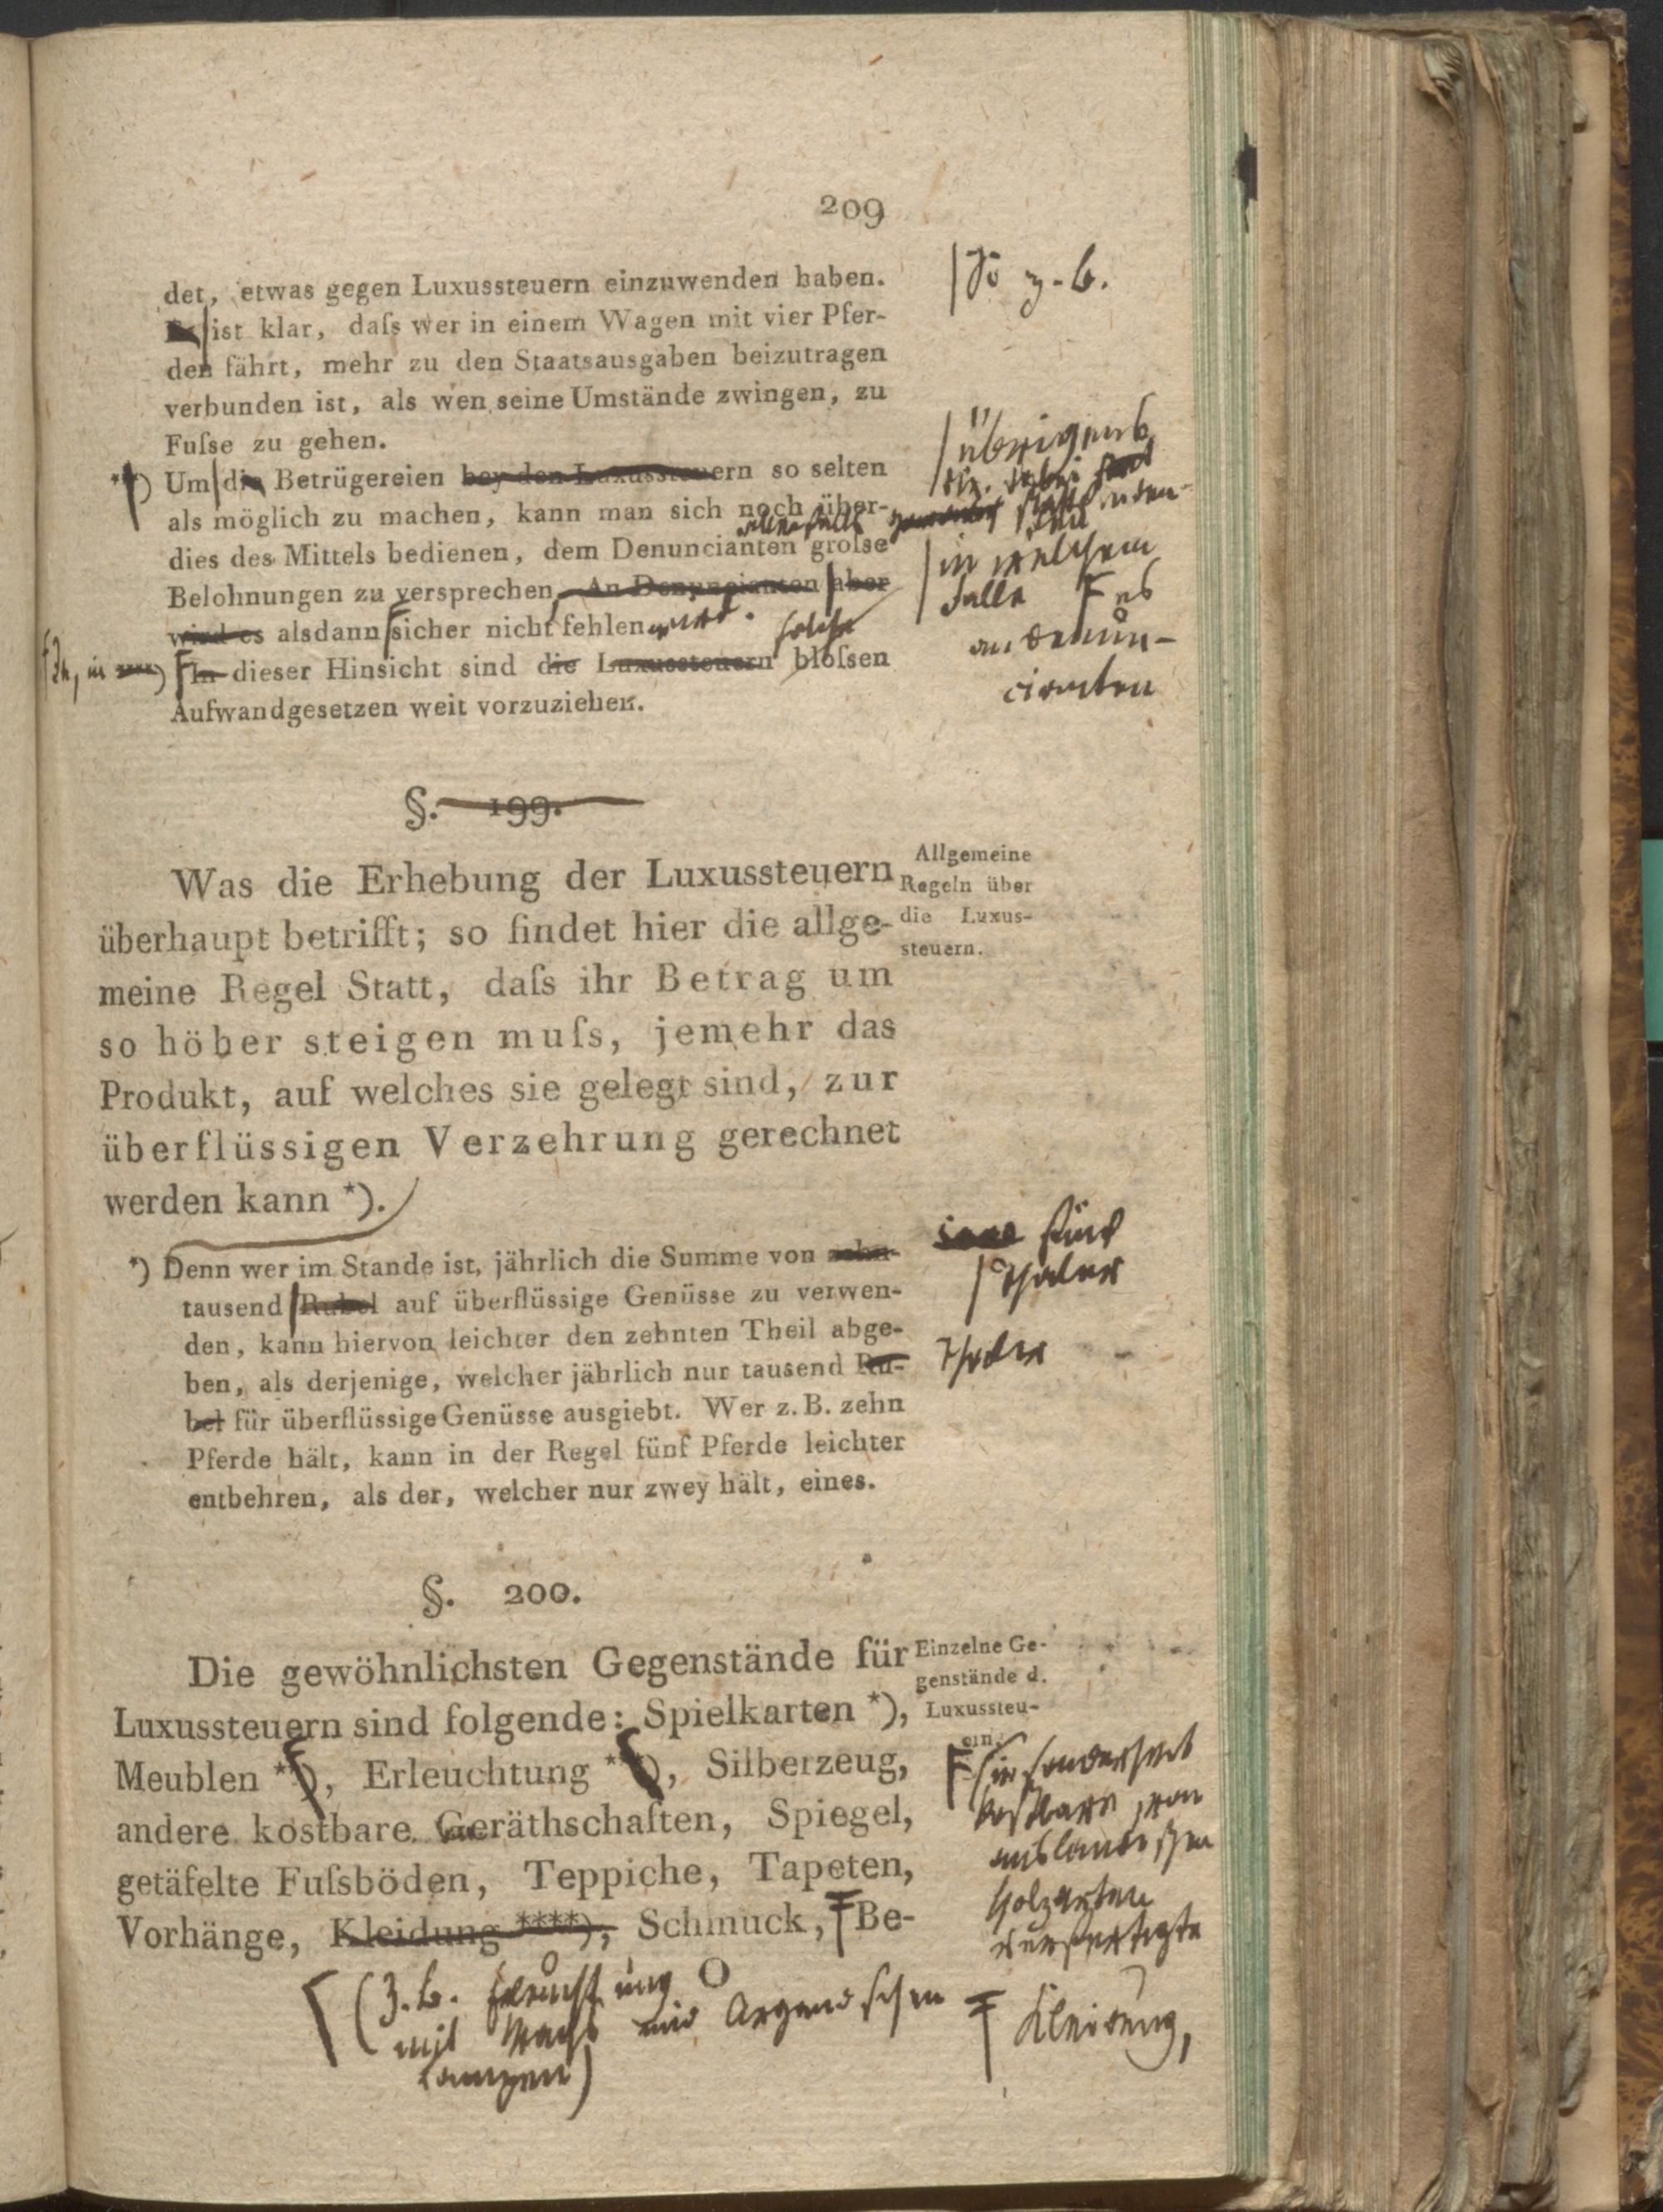 209
det, etwas gegen Luxussteuern einzuwenden haben.
So z. B.
Es ist klar, daſs wer in einem Wagen mit vier Pfer-
den fährt, mehr zu den Staatsausgaben beizutragen
verbunden ist, als wen seine Umstände zwingen, zu
Fuſse zu gehen.
übrigens
Um die Betrügereien bey den Luxussteuern so selten
als möglich zu machen, kann man sich noch über-
allenfalls
dies des Mittels bedienen, dem Denuncianten groſse
in welchem
Belohnungen zu versprechen. An Denuncianten aber
Falle es
wird es alsdann sicher nicht fehlen wird.
an Denun-
solche
cianten
In dieser Hinsicht sind die Luxussteuern bloſsen
Aufwandgesetzen weit vorzuziehen.
§. 199.
Allgemeine
Regeln über
die Luxus-
steuern.
Was die Erhebung der Luxussteuern
überhaupt betrifft; so findet hier die allge-
meine Regel Statt, daſs ihr Betrag um
so höher steigen muſs, jemehr das
Produkt, auf welches sie gelegt sind, zur
überflüssigen Verzehrung gerechnet
werden kann *).
*) Denn wer im Stande ist, jährlich die Summe von zehn-
fünf
tausend Rubel auf überflüssige Genüsse zu verwen-
Thaler
den, kann hiervon leichter den zehnten Theil abge-
ben, als derjenige, welcher jährlich nur tausend Ru-
Thaler
bel für überflüssige Genüsse ausgiebt. Wer z. B. zehn
Pferde hält, kann in der Regel fünf Pferde leichter
entbehren, als der, welcher nur zwey hält, eines.
§. 200.
Einzelne Ge-
genstände d.
Luxussteu-
ern.
Die gewöhnlichsten Gegenstände für
Luxussteuern sind folgende: Spielkarten *),
Meublen **), Erleuchtung ***), Silberzeug,
andere kostbare Geräthschaften, Spiegel,
getäfelte Fuſsböden, Teppiche, Tapeten,
Vorhänge, Kleidung ****), Schmuck, Be-
(insonderheit
kostbare von
ausländischen
Holzarten
verfertigte
(z. B. Erleuchtung
mit Wachs und Argandschen
Lampen)
Kleidung,